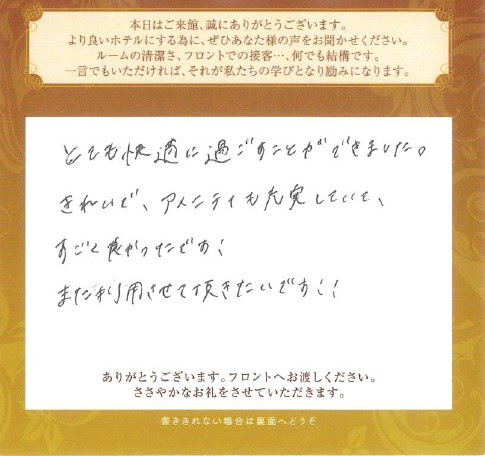 本日はご来館、誠にありがとうございます。
より良いホテルにする為に、ぜひあなた様の声をお聞かせください。
ルームの清潔さ、フロントでの接客…、何でも結構です。
一言でもいただければ、それが私たちの学びとなり励みになります。
とても快適に過ごすことができました。
きれいで、アメニティも充実していて、
すごく良かったです!
また利用させて頂きたいです!!
ありがとうございます。フロントへお渡しください。
ささやかなお礼をさせていただきます。
書ききれない場合は裏面へどうぞ